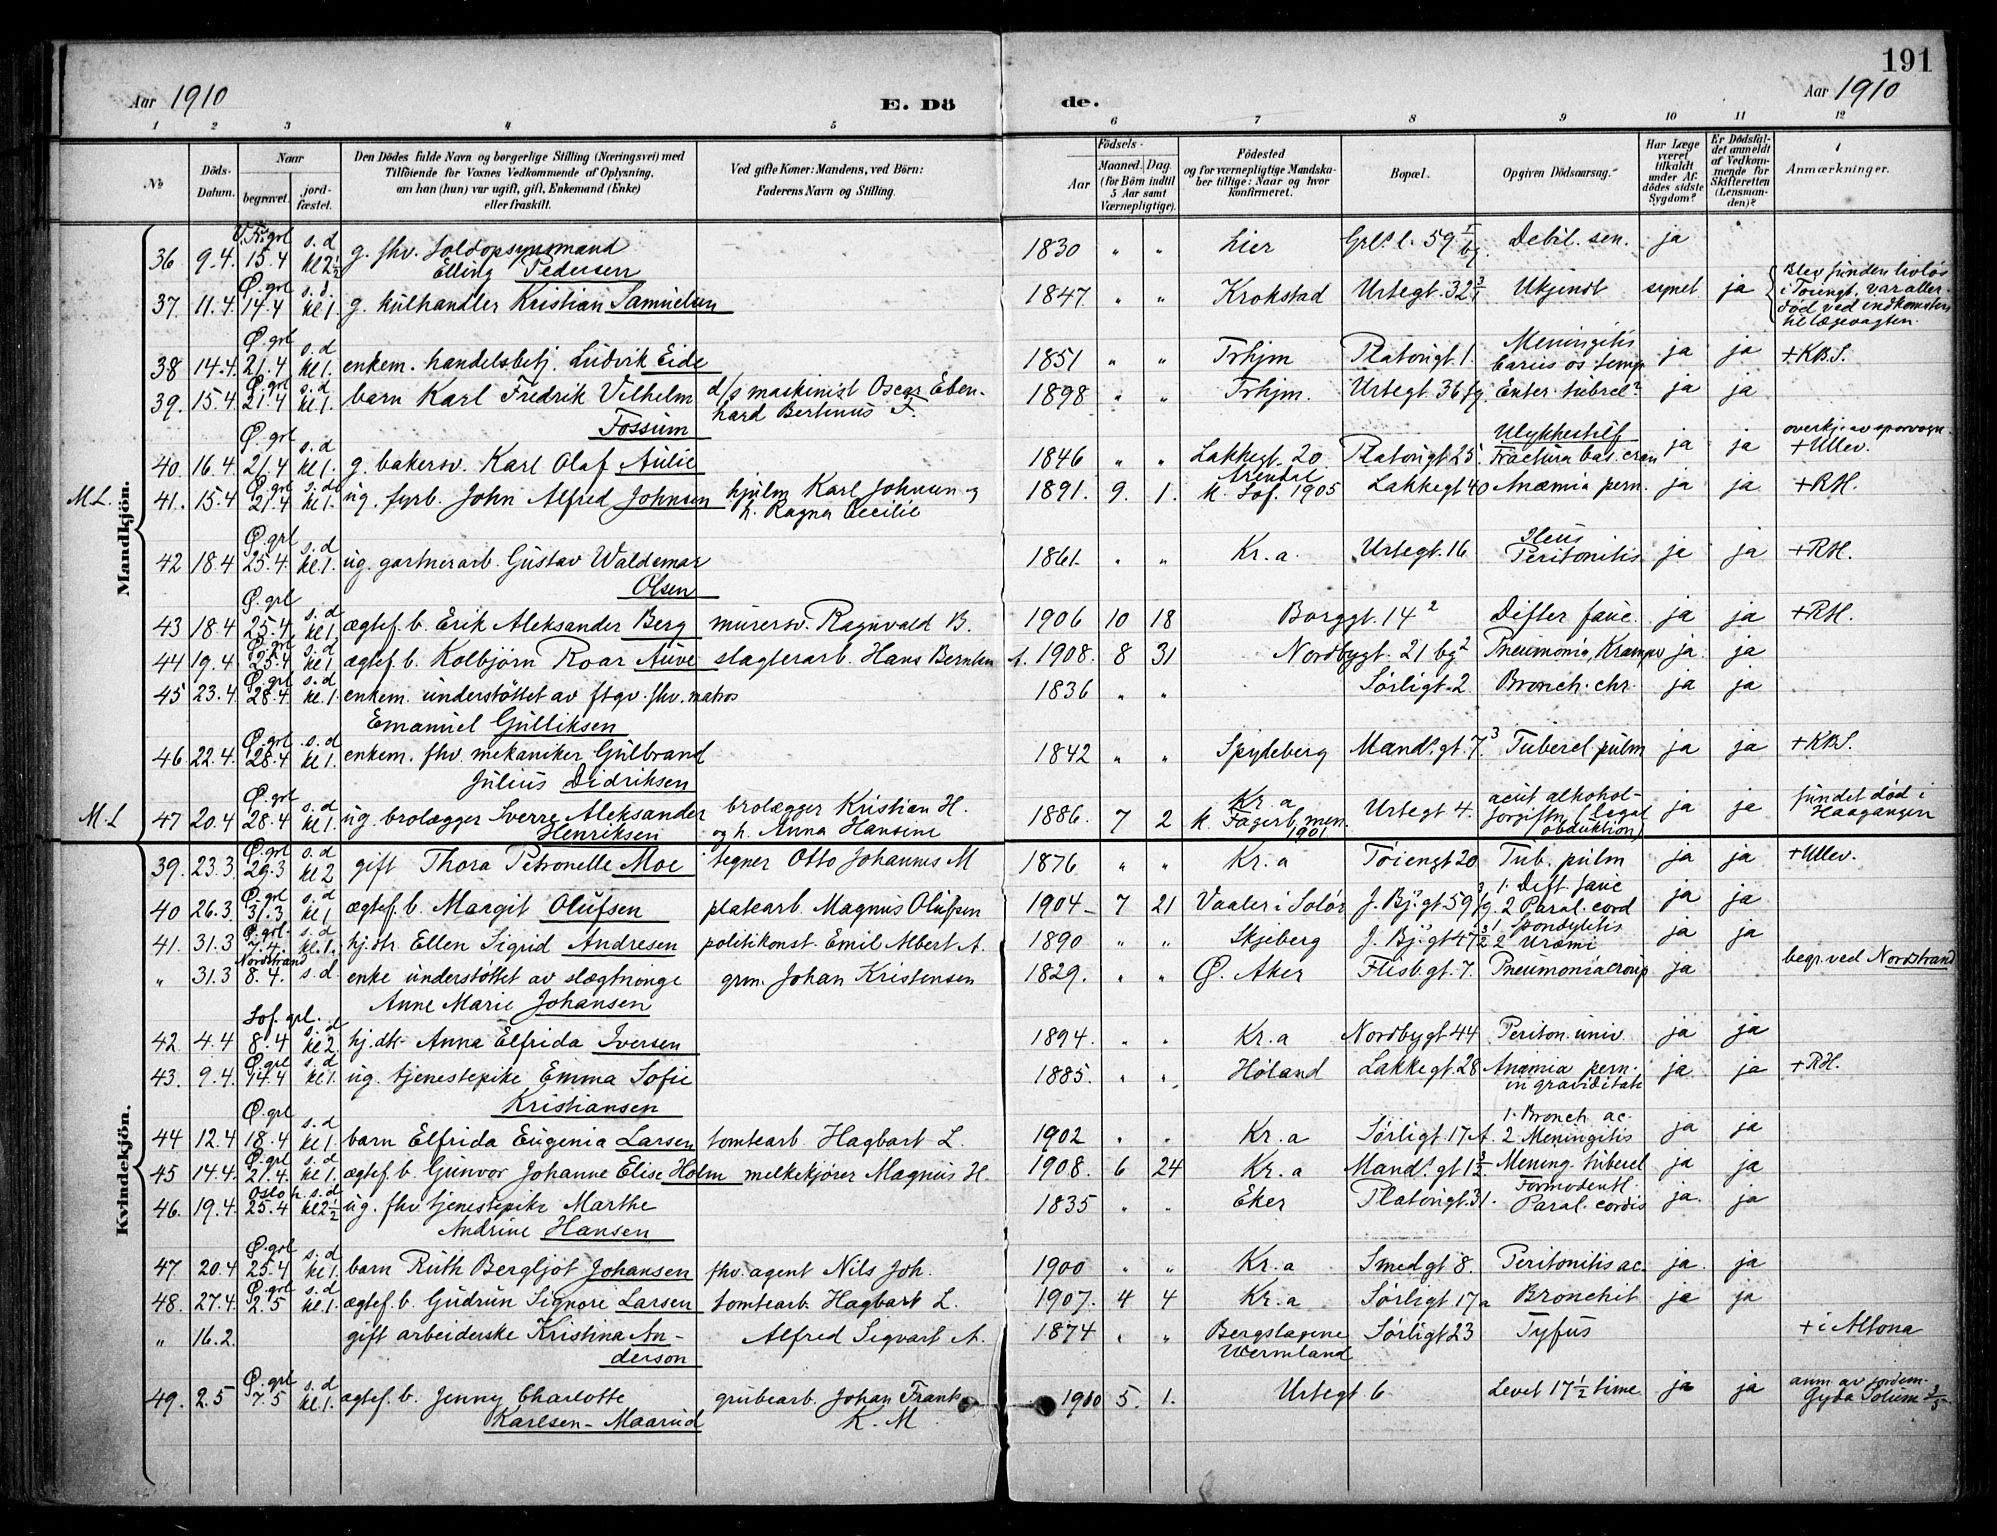 191
Aar 1910 E. Dö de. Aar 1910
1 2 3 4 5 6 7 8 9 10 11 12
No Döds-Datum. Naar begravet. jord-fæstet. Den Dödes fulde Navn og borgerlige Stilling (Næringsvei) med Tilföiende for Voxnes Vedkommende af Oplysning, om han (hun) var ugift, gift, Enkemand (Enke) eller fraskilt. Ved gifte Koner: Mandens, ved Börn: Faderens Navn og Stilling. Födsels- Aar Maaned. Dag. (for Börn indtil 5 Aar samt Værnepligtige). Födested og for værnepligtige Mandska-ber tillige: Naar og hvor konfirmeret. Bopæl. Opgiven Dödsaarsag. Har Læge været tilkaldt under Af-dödes sidste Sygdom? Er Dödsfal-det anmeldt af Vedkom-mende for Skifteretten (Lensman-den)? Anmærkninger.
Mandkjön.
V. Kr. grl s. d
36 9.4. 15.4 kl 2½ g. fhv. Loldopsynsmand 1830 " " Lier Grl.s l. 59 I bg. Debil. sen. ja
Elling Pedersen
Ø. grl s. d.
37. 11.4. 14.4 kl 1. g. kulhandler Kristian Samuelsen 1847 " " Krokstad Urtegt. 32 Ukjendt synet ja Blev funden livløs
i Toiengt. var aller-
død ved indkomsten
til lægevagten.
Ø. grl s. d
38 14.4. 21.4 kl 1. enkem. handelsbetj. Ludvik Eide 1851 " " Trhjm Platougt 1. Meningitis ja ja + K.S.
Carius os temp
Ø. grl s. d
39. 15.4. 21.4 kl 1. barn Karl Fredrik Vilhelm d/s maskinist Oscar Eben- 1898 " " Trhjm. Urtegt. 36 fg. Enter. tubrel? ja ja
Fossum hard Bertinus F.
Ø. grl s. d
40. 16.4. 21.4 kl 1. g. bakersv. Karl Olaf Aulie 1846 " " Lakkegt. 20 Platougt 25 Ulykkestilf ja ja overkj. av sporvogn
Fractura bas. cran + Ullev.
Ø. grl s. d.
M L. 41. 15.4 21.4 kl 1. ug. fyrb. John Alfred Johnsen hjulm Karl Johnsen og 1891. 9. 1. Arendal Lakkegt 40 Anæmia pern. ja ja + RH.
h. Ragna Cecilie k. Sof. 1905
Ø. grl s. d
42 18.4 25.4 kl 1. ug. gartnerarb. Gustav Waldemar 1861. " " Kr. a. Urtegt. 16 Ileus ja ja + RH.
Olsen Peritonitis
Ø. grl s. d
43 18.4 25.4 kl 1. ægtef. b. Erik Aleksander Berg murersv. Ragnvald B. 1906 10 18 Borggt. 14 2 Difter fauc. ja ja + RH.
Ø. grl s. d
44 19.4 25.4 kl 1 ægtef. b. Kolbjörn Roar Auve slagterarb. Hans Berntsen A. 1908. 8 31 Nordbygt. 21 bg 2 Pneumonia, Kramper ja ja
Ø. grl s. d
45 23.4 28.4 kl 1. enkem. understöttet av ftgv. fhv. matros 1836 " " Sørligt. 2 Bronch. chr. ja ja
Emanuel Gulliksen
Ø. grl s. d
46 22.4. 28.4 kl 1. enkem. fhv. mekaniker Gulbrand 1842 " " Spydeberg Mands. gt. 7. 3 Tuberel pulm ja ja + K.S.
Julius Didriksen
Ø. grl s. d
M. L 47 20.4 28.4 kl 1. ug. brolægger Sverre Aleksander brolægger Kristian H. 1886. 7 2 Kr. a Urtegt 4. acut alkohol- ja ja fundet död i
Henriksen og h. Anna Hansine k. Fagerb. men. 1901 forgiftn. (legal obduktion) Haagangen
Kvindekjön.
Ø. grl s. d
39. 23.3. 29.3 kl 2 gift Thora Petronelle Moe tegner Otto Johannes M 1876 " " Kr. a Töiengt 20 Tub. pulm ja ja + Ullev.
Ø. grl s. d
40 26.3. 31.3 kl 1 ægtef. b. Margit Olufsen platearb. Magnus Olufsen 1904 7 21 Vaaler i Solör J. Bj. gt 59 3 fg. 1. Dift. fauc ja ja
2 Paral. cord
Ø. grl. s. d
41. 31.3 7.4. kl. 1. hj. dtr. Ellen Sigrid Andresen politikonst. Emil Albert A. 1890 " " Skjeberg J. Bj. gt 47 3/2 1. Spondylitis ja ja
2 Uræmi
Nordstrand
" 31.3 8.4. s. d. enke understöttet av slægtninge grm. Johan Kristensen 1829. " " Ø. Aker Flisbgt. 7. Pneumoniacroup ja begr. ved Nordstrand
Anne Marie Johansen
Sof. grl. s. d
42. 4.4 8.4 kl 2. hj. dtr. Anna Elfrida Iversen 1894. " " Kr. a Nordbygt 44 Periton. univ. ja ja
Ø. grl s. d
43. 9.4. 14.4 kl 1. ug. tjenestepike Emma Sofie 1885. " " Höland Lakkegt. 28 Anæmia pern. ja ja + RH.
Kristiansen in graviditate
Ø. grl s. d
44 12.4 18.4 kl 1. barn Elfrida Eugenia Larsen tomtearb. Hagbart L. 1902 " " Kr. a Sørligt 17 A. 1. Bronch. ac. ja ja
2 Meningitis
Ø. grl s. d
45 14.4. 21.4. kl 1. ægtef. b. Gunvor Johanne Elise Holm melkekjörer Magnus H. 1908. 6 24 Kr. a Mands. gt 1 3/2. Mening. tuberel ja ja
Oslo h. s. d
46. 19.4. 25.4 kl 2½ ug. fhv. tjenestepike Marthe 1835 " " Eker Platougt. 31. Formodentl. ja. ja
Andrine Hansen Paral. cordis
Ø. grl s. d
47. 20.4 25.4 kl 1. barn Ruth Bergljot Johansen fhv. agent Nils Joh. 1900 " " Kr. a Smedgt 8. Peritonitis ac. ja. ja
Ø. grl s. d
48. 27.4. 2.5 kl. 1. ægtef. b. Gudrun Signore Larsen tomtearb. Hagbart L. 1907. 4 4 Kr. a Sørligt 17 a Bronchit ja ja
" 16.2. gift arbeiderske Kristina An- Alfred Sigvart A. 1874 " " Bergslagene Sørligt 23 Tyfus + i Altona
derson Wermland
Ø. grl s. d
49. 2.5 7.5 kl 1. ægtef. b. Jenny Charlotte grubearb. Johan Frank 1910 5. 1. Urtegt 6 Levet 17½ time ja ja anm. av jordem.
Karlsen-Maarud K. M. Gyda Solum 3/5